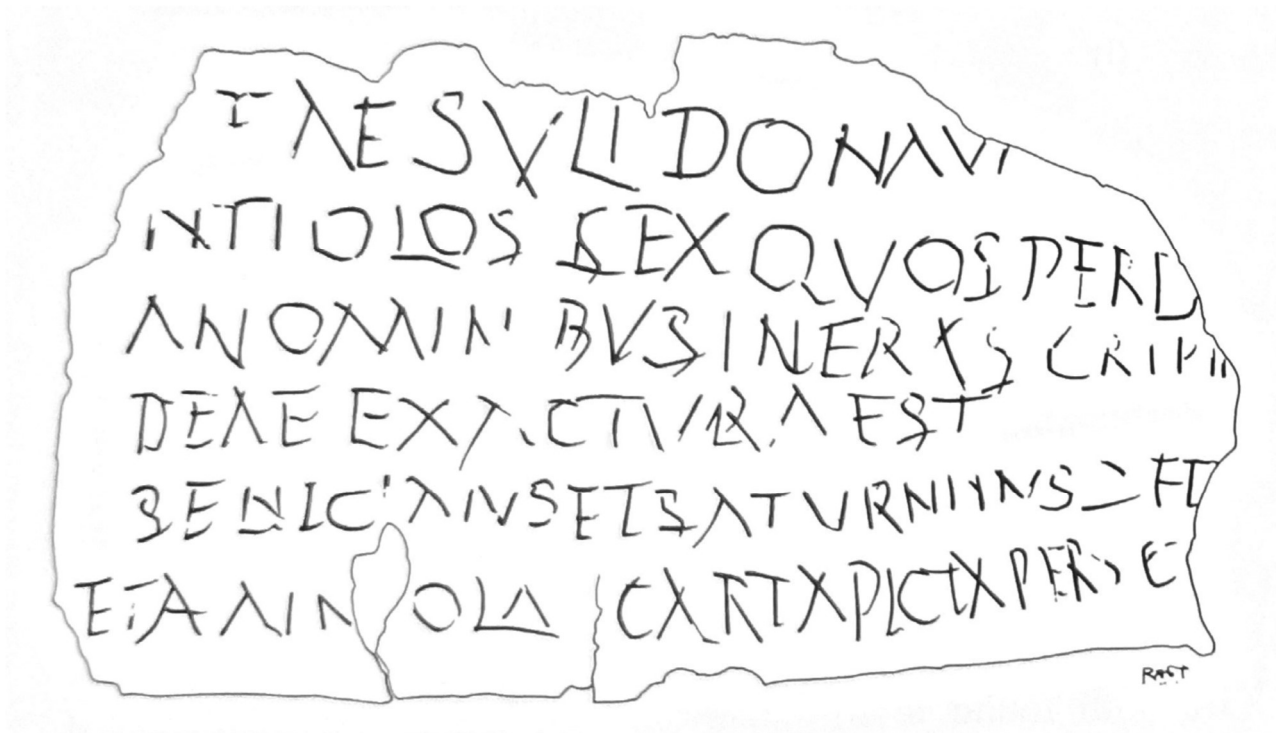 AESVLI DONAVI
NTIOLOS SEX QVOS PERD
ANOMIN BVSINFRASCRIP
DEAE EXACTVRA EST
SENICIAVSETSATVRNINVS ED
ETANN OLA CARTAPICTAPERSC